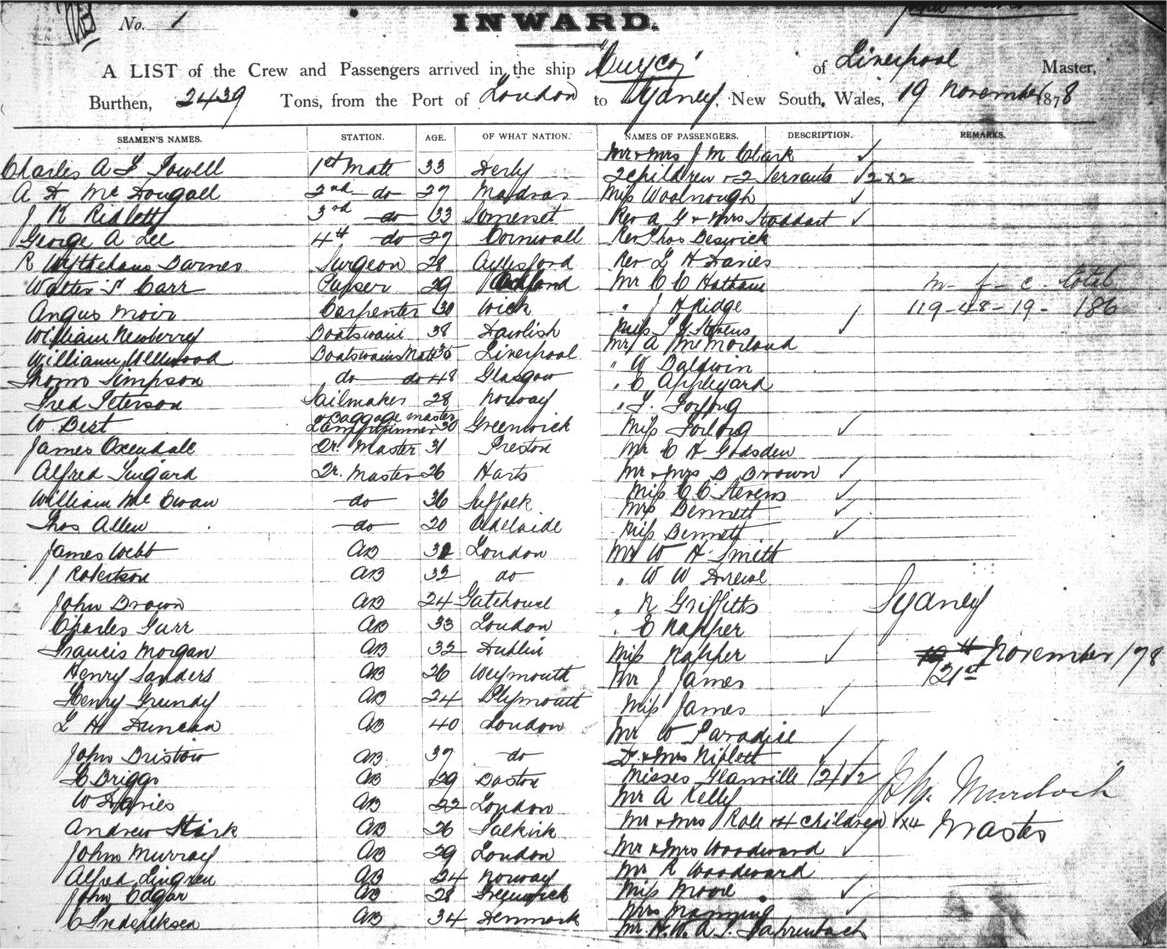 No. 1
INWARD.
A LIST of the Crew and Passengers arrived in the ship of Liverpool Master,
Burthen, 2439 Tons, from the Port of London to Sydney, New South Wales, 19 November 1878
SEAMEN'S NAMES. STATION. AGE. OF WHAT NATION. NAMES OF PASSENGERS. DESCRIPTION. REMARKS.
Mr & Mrs J M Clark ✓
Charles A F Powell 1st Mate 33 Derby 2 children & 2 Servants ✓ 2 x 2
A H McDougall 2nd do 27 Madras Miss Woolnough ✓
J K Ridlett 3rd do 33 Somerset Rev A G & Mrs Stoddart ✓
George A Lee 4th do 27 Cornwall Rev Thos Beswick
R Barnes Surgeon 28 Rev L H Davies
Walter S Carr Purser 29 Mr C C m - f - c - total
Angus Moir Carpenter 30 Wick " J H Ridge 119 - 48 - 19 - 186
William Newberry Boatswain 38 Dawlish Miss Stevens ✓
William Boatswains Mate Liverpool Mr A McMorland
Simpson do do 48 Glasgow " W Baldwin
Fred Peterson Sailmaker 28 Norway " C Appleyard
& Baggage Master
W Bert Lamptrimmer 30 Greenwich Miss ✓
James Oxendale Qr. Master 31 Preston Mr C H Godsden
Alfred Qr. Master 26 Harts Mr & Mrs B Brown ✓
William McEwan do 36 Suffolk Miss C C Stevens ✓
Mrs Bennett ✓
Thos Allen do 20 Adelaide Miss Bennett ✓
James Webb AB London Mr W H Smith
J Robertson AB 32 do " W W
John Brown AB 24 Gatehouse " R Griffitts Sydney
Charles Garr AB 33 London " C Napper
Francis Morgan AB 32 Dublin Miss Napper ✓ 21st November /78
Henry Sanders AB 26 Weymouth Mr J James
Henry Grundy AB 24 Plymouth Miss James ✓
L H Duncan AB 40 London Mr W Paradise
John Bristow AB 37 do Dr & Mrs Niplett ✓
C Briggs AB 29 Boston Misses Glanville (2) ✓ 2
W Davies AB 22 London Mr A Kelly J W Murdoch
Andrew Stark AB 26 Falkirk Mr & Mrs Role & 4 children ✓ x 4 Master
John Murray AB 29 London Mr & Mrs Woodward ✓
Alfred Lingren AB 24 Norway Mr R Woodward
John Edgar AB 28 Greenwich Miss Moore ✓
C Frederiksen AB 34 Denmark Mrs Manning ✓
Mr H. W. A. T.